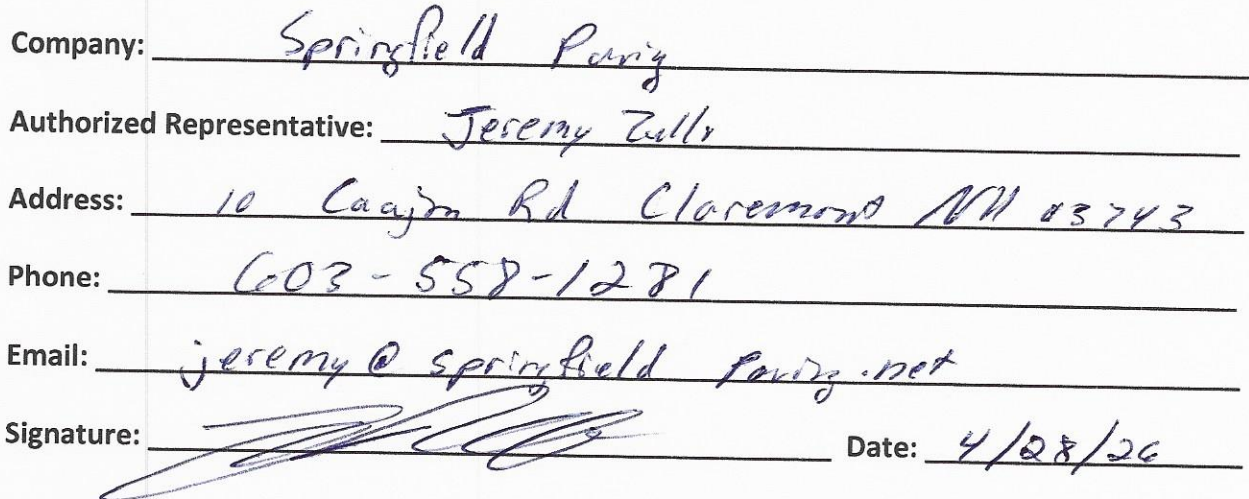 Company: Springfield Paving
Authorized Representative: Jeremy
Address: 10 Rd Claremont NH 03743
Phone: 603-558-1281
Email: jeremy@springfieldpaving.net
Signature:
Date: 4/28/26